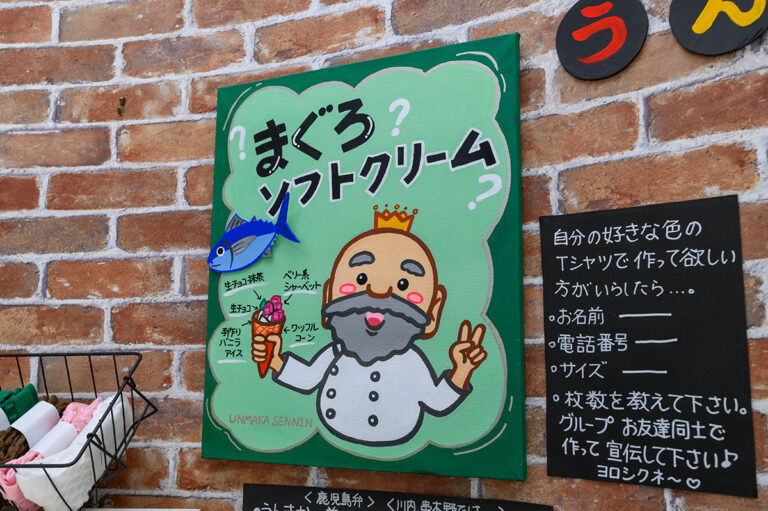 うん
まぐろ
ソフトクリーム
? ? ?
生チョコ抹茶
ベリー系
シャーベット
生チョコ
手作り
バニラ
アイス
ワッフル
コーン
UNMAKA SENNIN
自分の好きな色の
Tシャツで作って欲しい
方がいらしたら...。
・お名前 ―――
・電話番号 ―――
・サイズ ―――
・枚数を教えて下さい。
グループ お友達同士で
作って 宣伝して下さい♪
ヨロシクネ〜♡
＜鹿児島弁＞